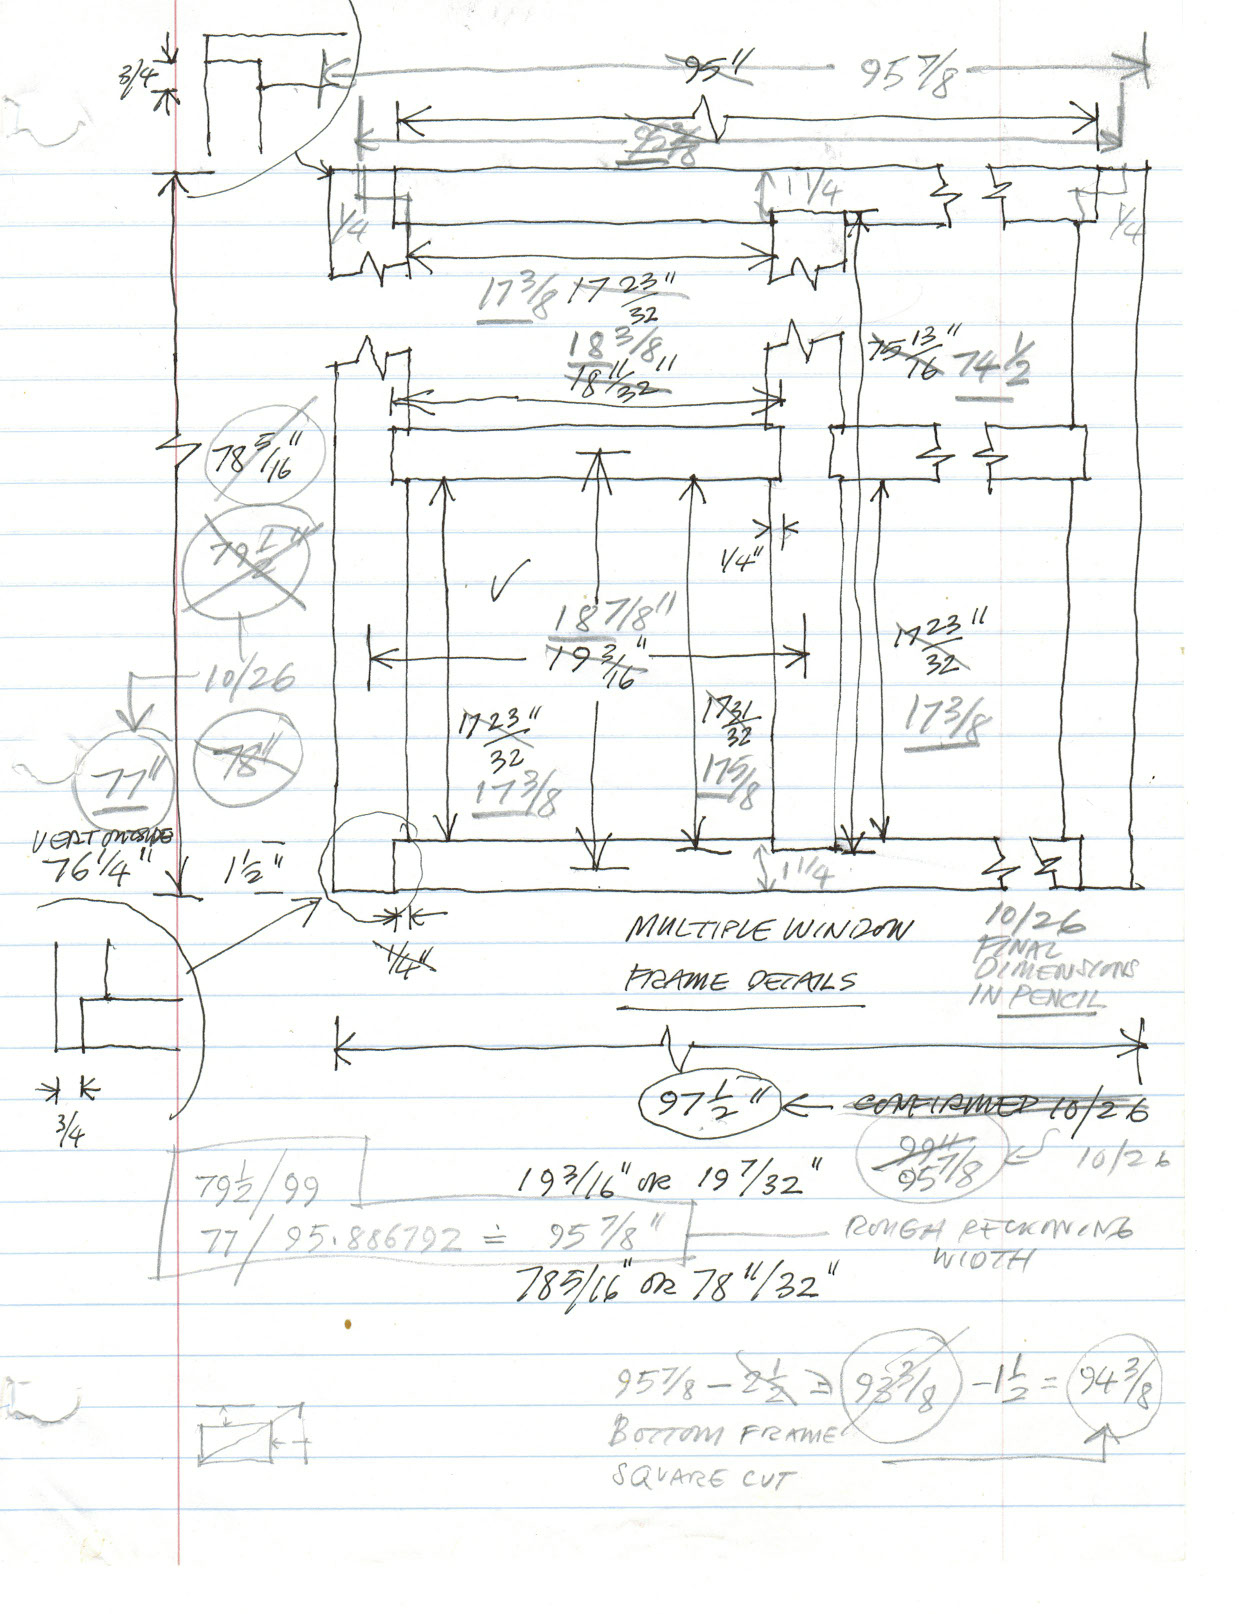 3/4
95" 95 7/8
95 7/8
1 1/4
1/4
1/4
17 3/8 17 23/32"
18 3/8
18 11/32"
75 13/16" 74 1/2
78 5/16"
79 1/2"
1/4"
18 7/8"
19 3/16"
17 23/32"
10/26
17 23/32"
17 31/32
17 3/8
78"
77"
17 3/8
17 5/8
VERT INSIDE
76 1/4"
1 1/2"
1 1/4
1/4"
MULTIPLE WINDOW
FRAME DETAILS
10/26
FINAL
DIMENSIONS
IN PENCIL
3/4
97 1/2" CONFIRMED 10/26
99"
95 7/8 10/26
79 1/2 / 99
19 3/16" OR 19 7/32"
77 / 95.886792 ≐ 95 7/8"
ROUGH RECKONING
WIDTH
78 5/16" OR 78 11/32"
95 7/8 - 2 1/2 = 93 3/8 - 1 1/2 = 94 3/8
BOTTOM FRAME
SQUARE CUT